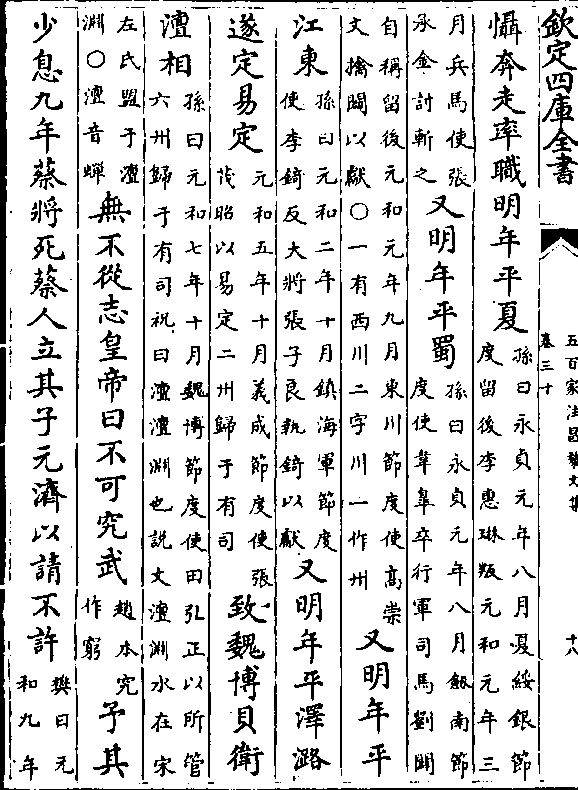 欽定四庫全書
五百家注昌黎文集
卷三十
十八
懾奔走率職明年平夏孫曰永貞元年八月夏綏銀節
度留後李惠琳叛元和元年三
月兵馬使張
承金討斬之又明年平蜀孫曰永貞元年八月劒南節
度使韋臯卒行軍司馬劉闢
自稱留後元和元年九月東川節度使高崇
文擒闢以獻○一有西川二字川一作州又明年平
江東孫曰元和二年十月鎮海軍節度
使李錡反大將張子良執錡以獻又明年平澤潞
遂定易定元和五年十月義成節度使張
茂昭以易定二州歸于有司致魏博貝衛
澶相孫曰元和七年十月魏博節度使田弘正以所管
六州歸于有司祝曰澶澶淵也説文澶淵水在宋
左氏盟于澶
淵○澶音蟬無不從志皇帝曰不可究武趙本究
作窮予其
少息九年蔡將死蔡人立其子元濟以請不許樊曰元
和九年